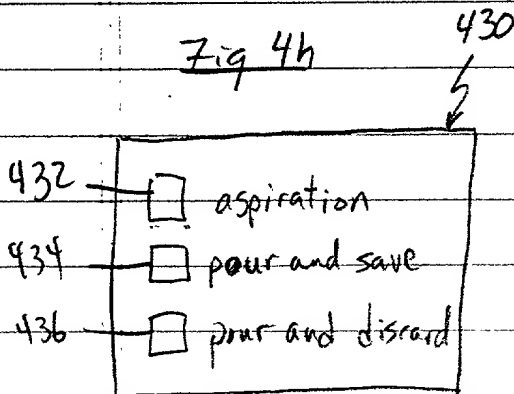 Fig 4h
430
432 aspiration
434 pour and save
436 pour and discard